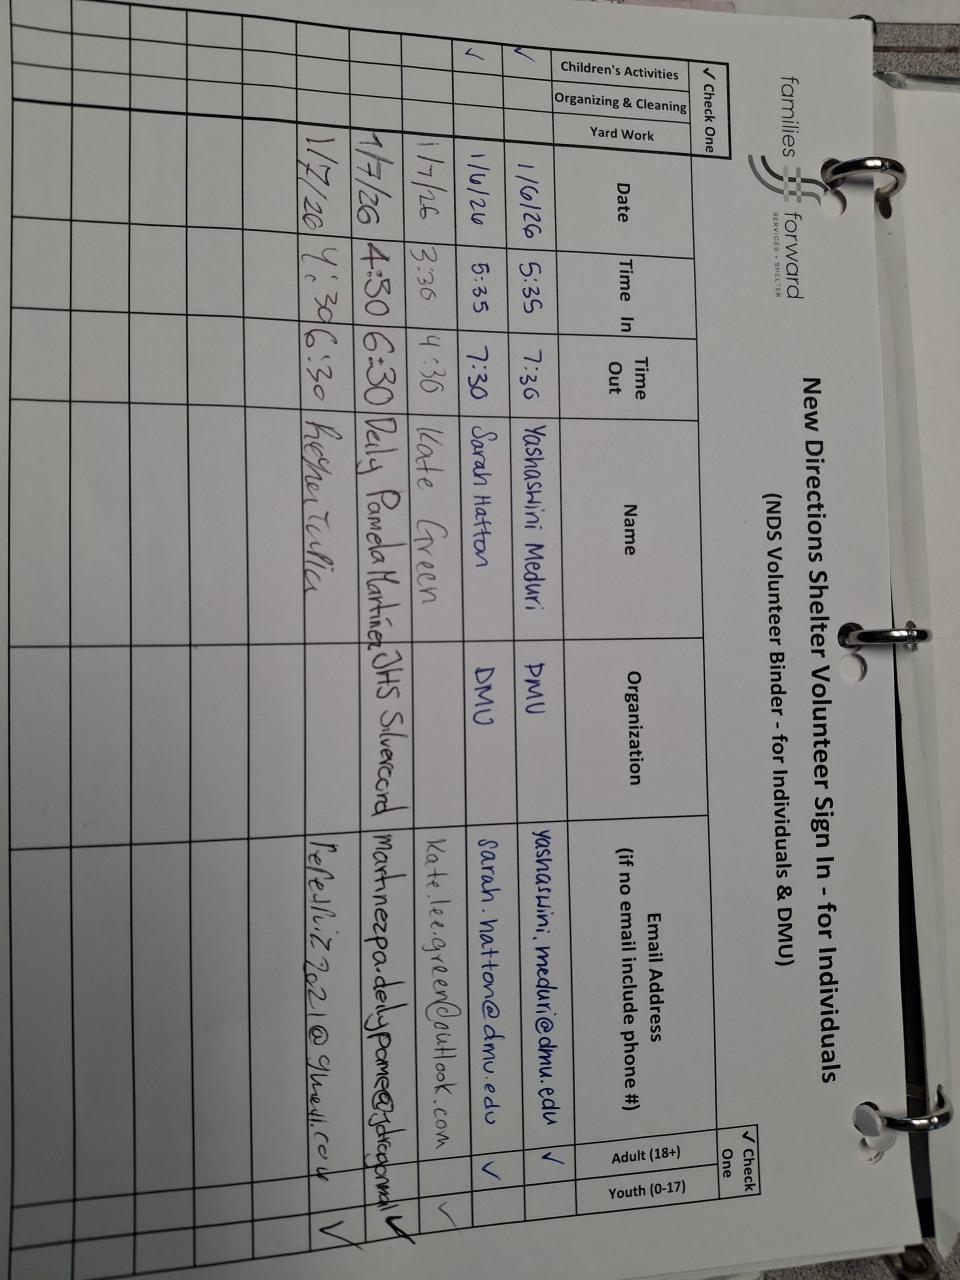 families forward
SERVICES + SHELTER
New Directions Shelter Volunteer Sign In - for Individuals
(NDS Volunteer Binder - for Individuals & DMU)
✓ Check One
✓ Check One
Children's Activities
Organizing & Cleaning
Yard Work
Date
Time In
Time Out
Name
Organization
Email Address
(if no email include phone #)
Adult (18+)
Youth (0-17)
✓ 1/6/26 5:35 7:30 Yashaswini Meduri DMU yashaswini.meduri@dmu.edu ✓
✓ 1/6/26 5:35 7:30 Sarah Hatton DMU sarah.hatton@dmu.edu ✓
1/7/26 3:30 4:30 Kate Green kate.lee.green@outlook.com ✓
1/7/26 4:30 6:30 Deily Pamela Martínez JHS Silvercord ✓
1/7/26 4:30 6:30 ✓